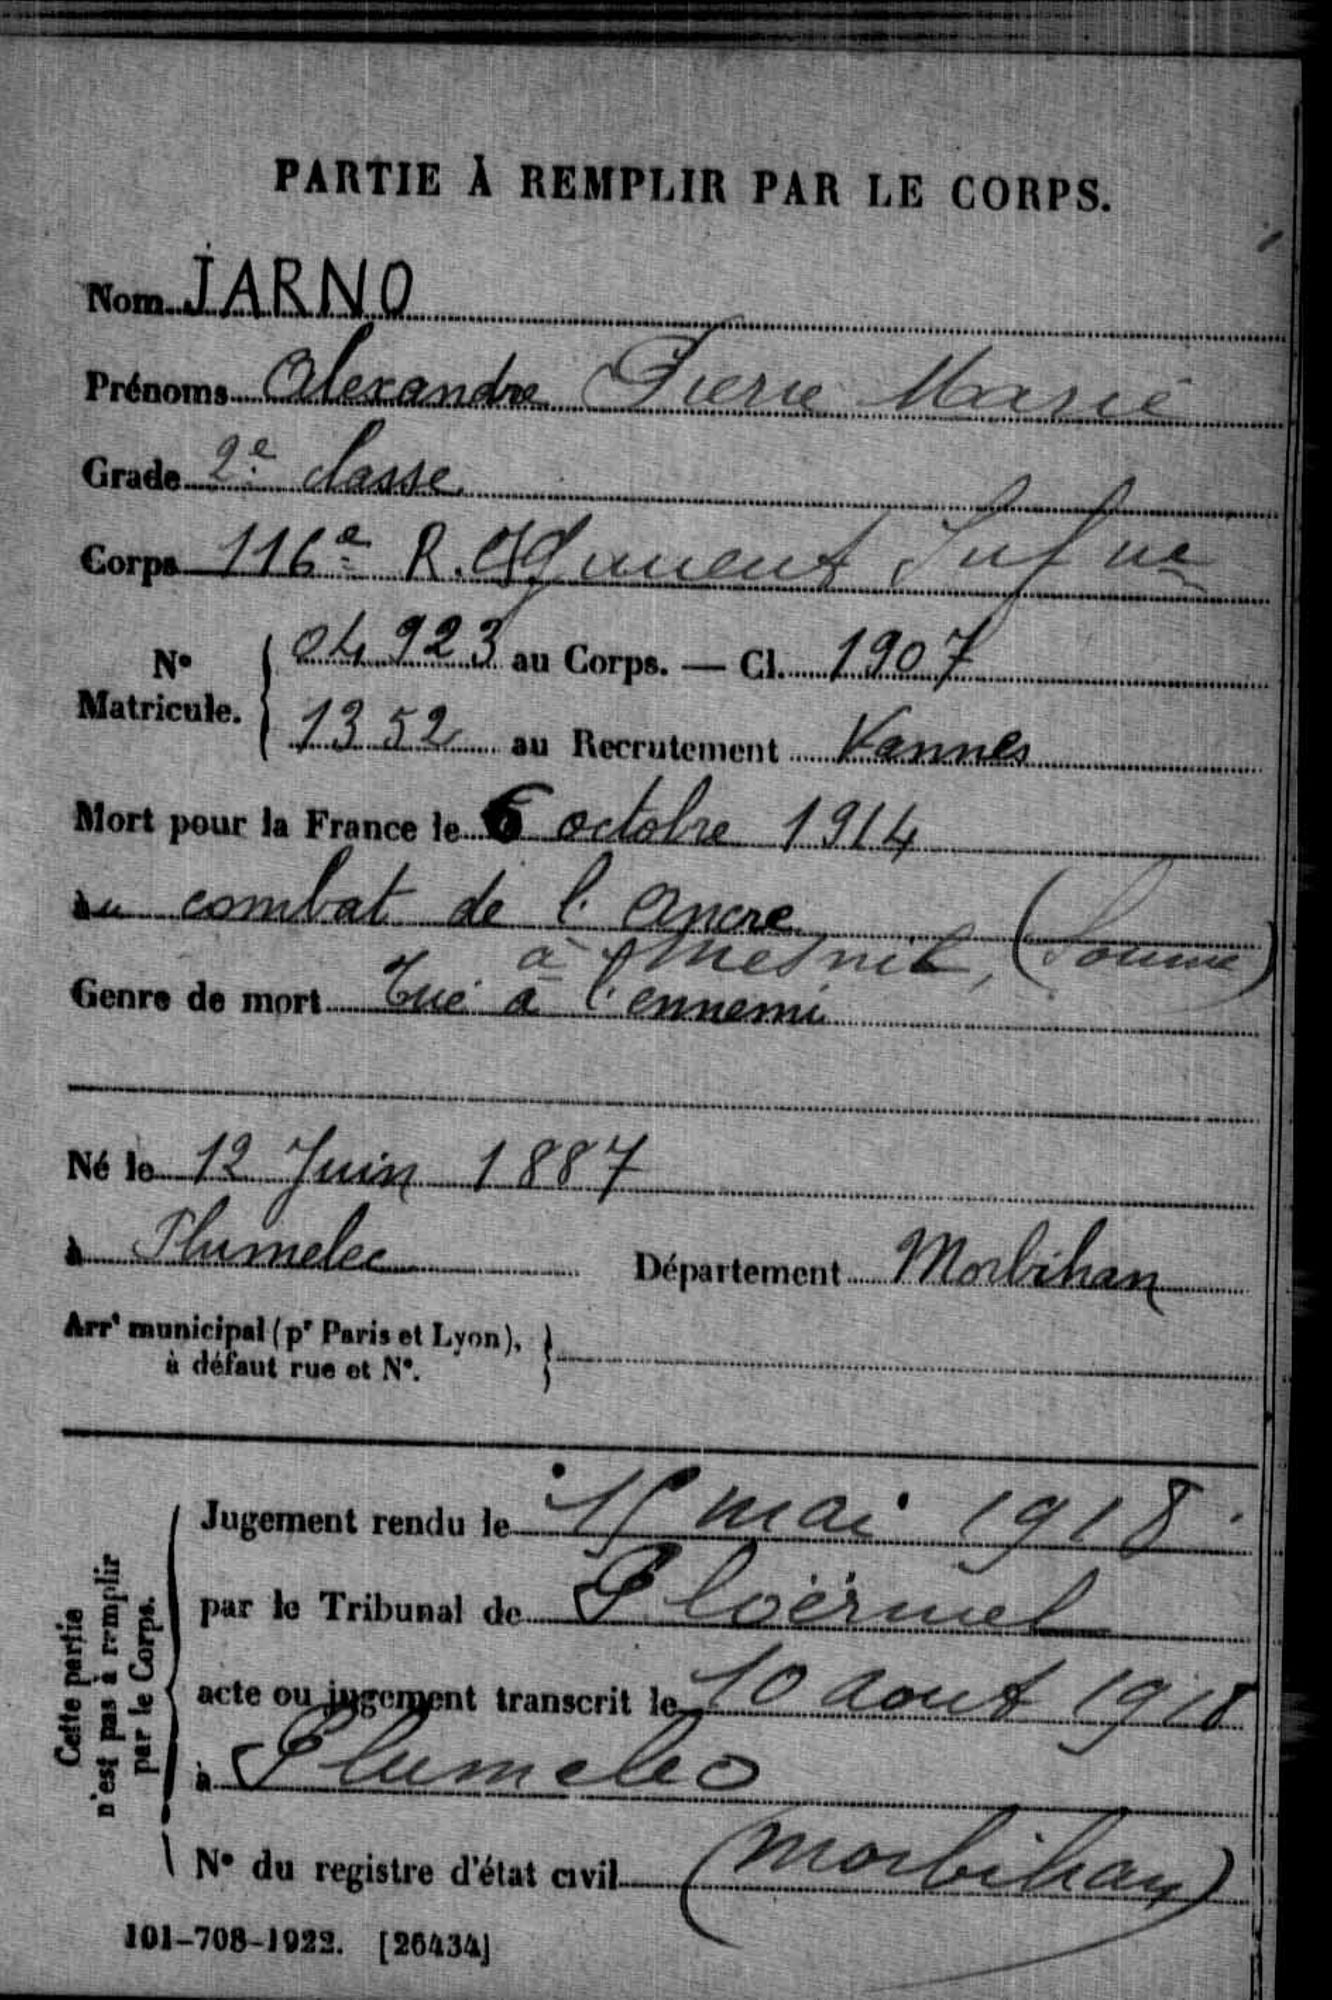 PARTIE À REMPLIR PAR LE CORPS.
Nom JARNO
Prénoms Alexandre Pierre Marie
Grade 2e classe
Corps 116e R. Egiment Inf rie
N° Matricule. { 04923 au Corps. — Cl. 1907
1352 au Recrutement Vannes
Mort pour la France le 6 octobre 1914
au combat de l'Ancre
à Mesnil, (Somme)
Genre de mort Tué à l'ennemi
Né le 12 Juin 1887
à Plumelec Département Morbihan
Arrt municipal (pr Paris et Lyon), }
à défaut rue et N°.
Cette partie n'est pas à remplir par le Corps.
Jugement rendu le 15 mai 1918
par le Tribunal de Ploërmel
acte ou jugement transcrit le 10 aout 1918
à Plumelec
N° du registre d'état civil (Morbihan)
101-708-1922. [26434]